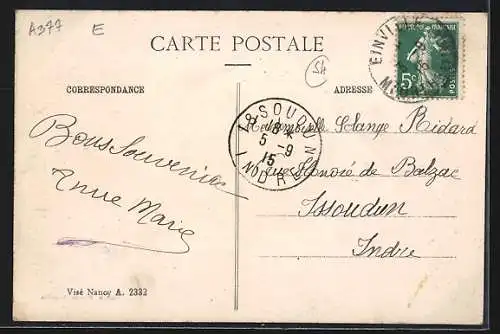 A377
E
CARTE POSTALE
54
CORRESPONDANCE
ADRESSE
EINVILLE
5c
POSTES
ISSOUDUN
18 *
5 - 9
15
INDRE
Mademoiselle Solange Ridard
rue Honoré de Balzac
Issoudun
Indre
Bons Souvenirs
Anne Marie
Visé Nancy A. 2332